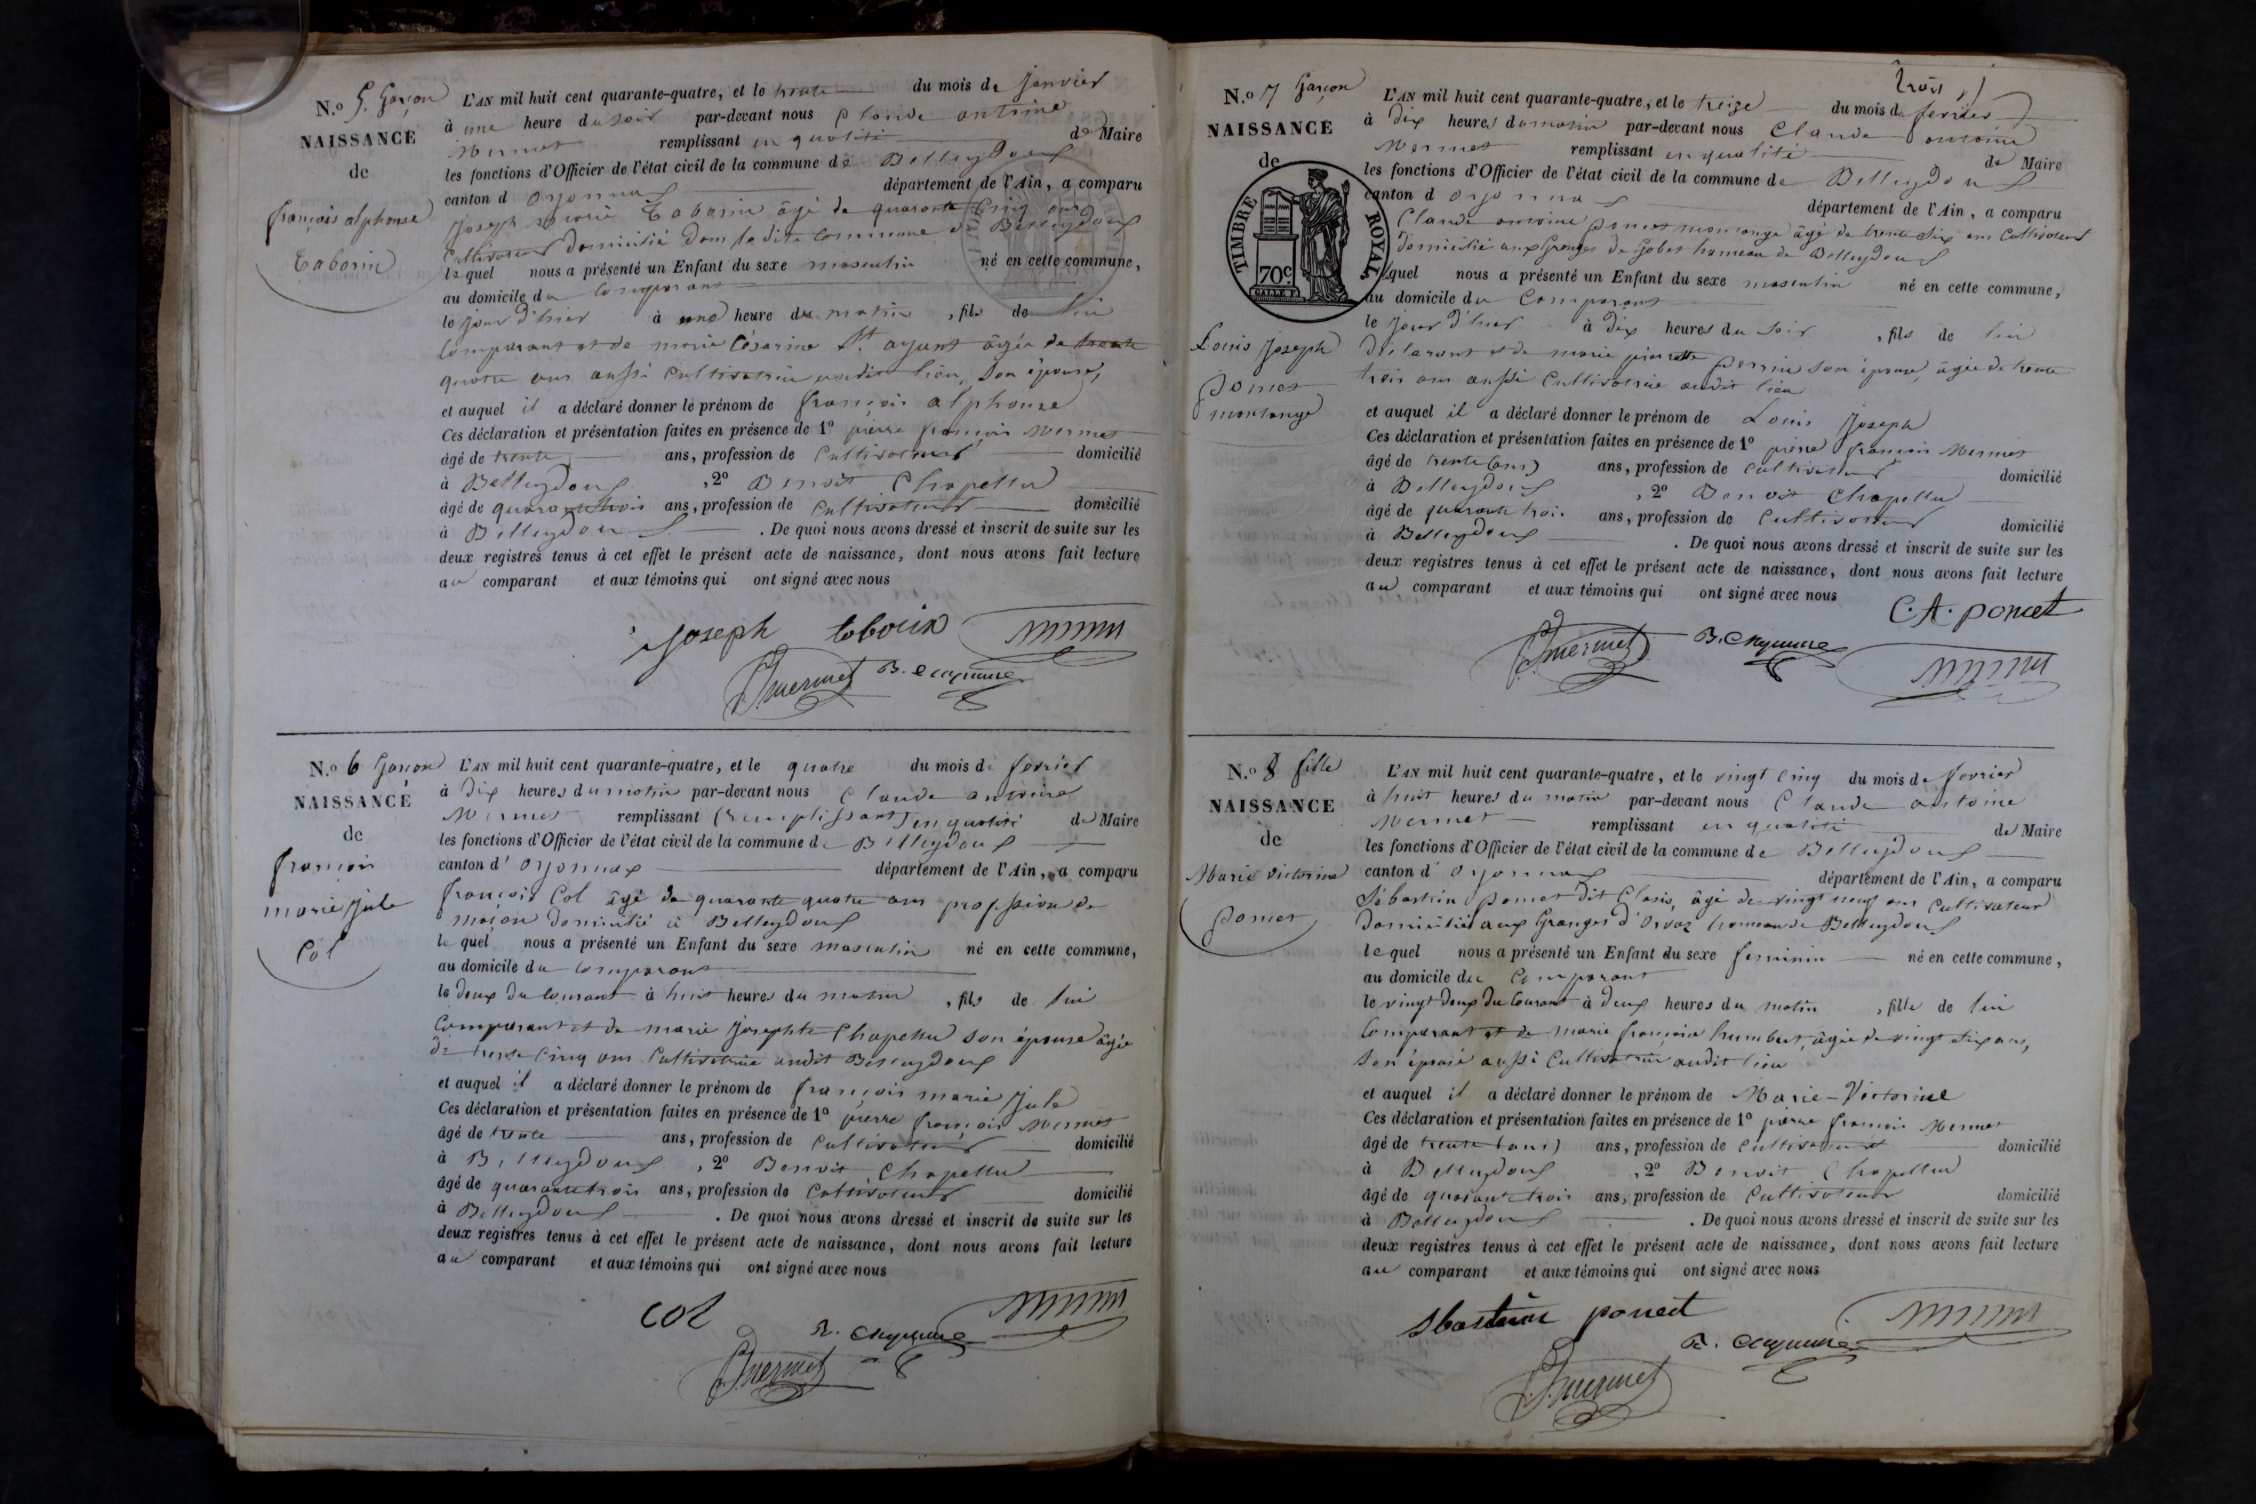 N.o 5. Garçon
NAISSANCE
de
françois alphonse
Tabarin
L'AN mil huit cent quarante-quatre, et le trente du mois de janvier
à une heure du soir par-devant nous Claude antoine
Mermet remplissant en qualité de Maire
les fonctions d'Officier de l'état civil de la commune de Belleydoux
canton d oyonnax département de l'Ain, a comparu
joseph marie Tabarin âgé de quarante cinq ans
Cultivateur domicilié dans la dite commune de Belleydoux
lequel nous a présenté un Enfant du sexe masculin né en cette commune,
au domicile du comparant
le jour d'hier à une heure du matin, fils de lui
Comparant et de marie Césarine St. ayant âgée de trente
quatre ans aussi Cultivatrice audit lieu, son épouse,
et auquel il a déclaré donner le prénom de françois alphonse
Ces déclaration et présentation faites en présence de 1o pierre françois Mermet
âgé de trente ans, profession de Cultivateur domicilié
à Belleydoux, 2o Benoit Chapellu
âgé de quarante trois ans, profession de Cultivateur domicilié
à Belleydoux. De quoi nous avons dressé et inscrit de suite sur les
deux registres tenus à cet effet le présent acte de naissance, dont nous avons fait lecture
au comparant et aux témoins qui ont signé avec nous
joseph tabarin
Mermet
N.o 6 Garçon
NAISSANCE
de
françois
marie Jule
Col
L'AN mil huit cent quarante-quatre, et le quatre du mois de fevrier
à dix heures du matin par-devant nous Claude antoine
Mermet remplissant (remplissant) en qualité de Maire
les fonctions d'Officier de l'état civil de la commune de Belleydoux
canton d' oyonnax département de l'Ain, a comparu
françois Col âgé de quarante quatre ans profession de
maçon domicilié à Belleydoux
lequel nous a présenté un Enfant du sexe masculin né en cette commune,
au domicile du comparant
le deux du Courant à huit heures du matin, fils de lui
Comparant et de marie josephte Chapellu son épouse âgée
de trente cinq ans Cultivatrice audit Belleydoux
et auquel il a déclaré donner le prénom de françois marie Jule
Ces déclaration et présentation faites en présence de 1o pierre françois Mermet
âgé de trente ans, profession de Cultivateur domicilié
à Belleydoux, 2o Benoit Chapellu
âgé de quarante trois ans, profession de Cultivateur domicilié
à Belleydoux. De quoi nous avons dressé et inscrit de suite sur les
deux registres tenus à cet effet le présent acte de naissance, dont nous avons fait lecture
au comparant et aux témoins qui ont signé avec nous
col
Mermet
trois
N.o 7 Garçon
NAISSANCE
de
TIMBRE ROYAL
70c
Louis Joseph
Poncet
montange
L'AN mil huit cent quarante-quatre, et le treize du mois de fevrier
à dix heures du matin par-devant nous Claude antoine
Mermet remplissant en qualité de Maire
les fonctions d'Officier de l'état civil de la commune de Belleydoux
canton d oyonnax département de l'Ain, a comparu
Claude antoine Poncet montange âgé de trente six ans Cultivateur
domicilié aux Granges de Gobet hameau de Belleydoux
lequel nous a présenté un Enfant du sexe masculin né en cette commune,
au domicile du Comparant
le jour d'hier à dix heures du soir, fils de lui
déclarant et de marie pierrette Perrin son épouse, âgée de trente
trois ans aussi Cultivatrice audit lieu
et auquel il a déclaré donner le prénom de Louis Joseph
Ces déclaration et présentation faites en présence de 1o pierre françois Mermet
âgé de trente (ans) ans, profession de Cultivateur domicilié
à Belleydoux, 2o Benoit Chapellu
âgé de quarante trois ans, profession de Cultivateur domicilié
à Belleydoux. De quoi nous avons dressé et inscrit de suite sur les
deux registres tenus à cet effet le présent acte de naissance, dont nous avons fait lecture
au comparant et aux témoins qui ont signé avec nous
C. A. poncet
Mermet
N.o 8 fille
NAISSANCE
de
Marie victorine
Poncet
L'AN mil huit cent quarante-quatre, et le vingt cinq du mois de fevrier
à huit heures du matin par-devant nous Claude antoine
Mermet remplissant en qualité de Maire
les fonctions d'Officier de l'état civil de la commune de Belleydoux
canton d' oyonnax département de l'Ain, a comparu
Sébastien Poncet dit Clasis, âgé de vingt neuf ans Cultivateur
domicilié aux Granges d'orvaz hameau de Belleydoux
lequel nous a présenté un Enfant du sexe feminin né en cette commune,
au domicile du Comparant
le vingt deux du Courant à deux heures du matin, fille de lui
Comparant et de marie françoise humbert, âgée de vingt six ans,
son épouse aussi Cultivatrice audit lieu
et auquel il a déclaré donner le prénom de Marie-Victorine
Ces déclaration et présentation faites en présence de 1o pierre françois Mermet
âgé de trente (ans) ans, profession de Cultivateur domicilié
à Belleydoux, 2o Benoit Chapellu
âgé de quarante trois ans, profession de Cultivateur domicilié
à Belleydoux. De quoi nous avons dressé et inscrit de suite sur les
deux registres tenus à cet effet le présent acte de naissance, dont nous avons fait lecture
au comparant et aux témoins qui ont signé avec nous
sbastien poncet
Mermet